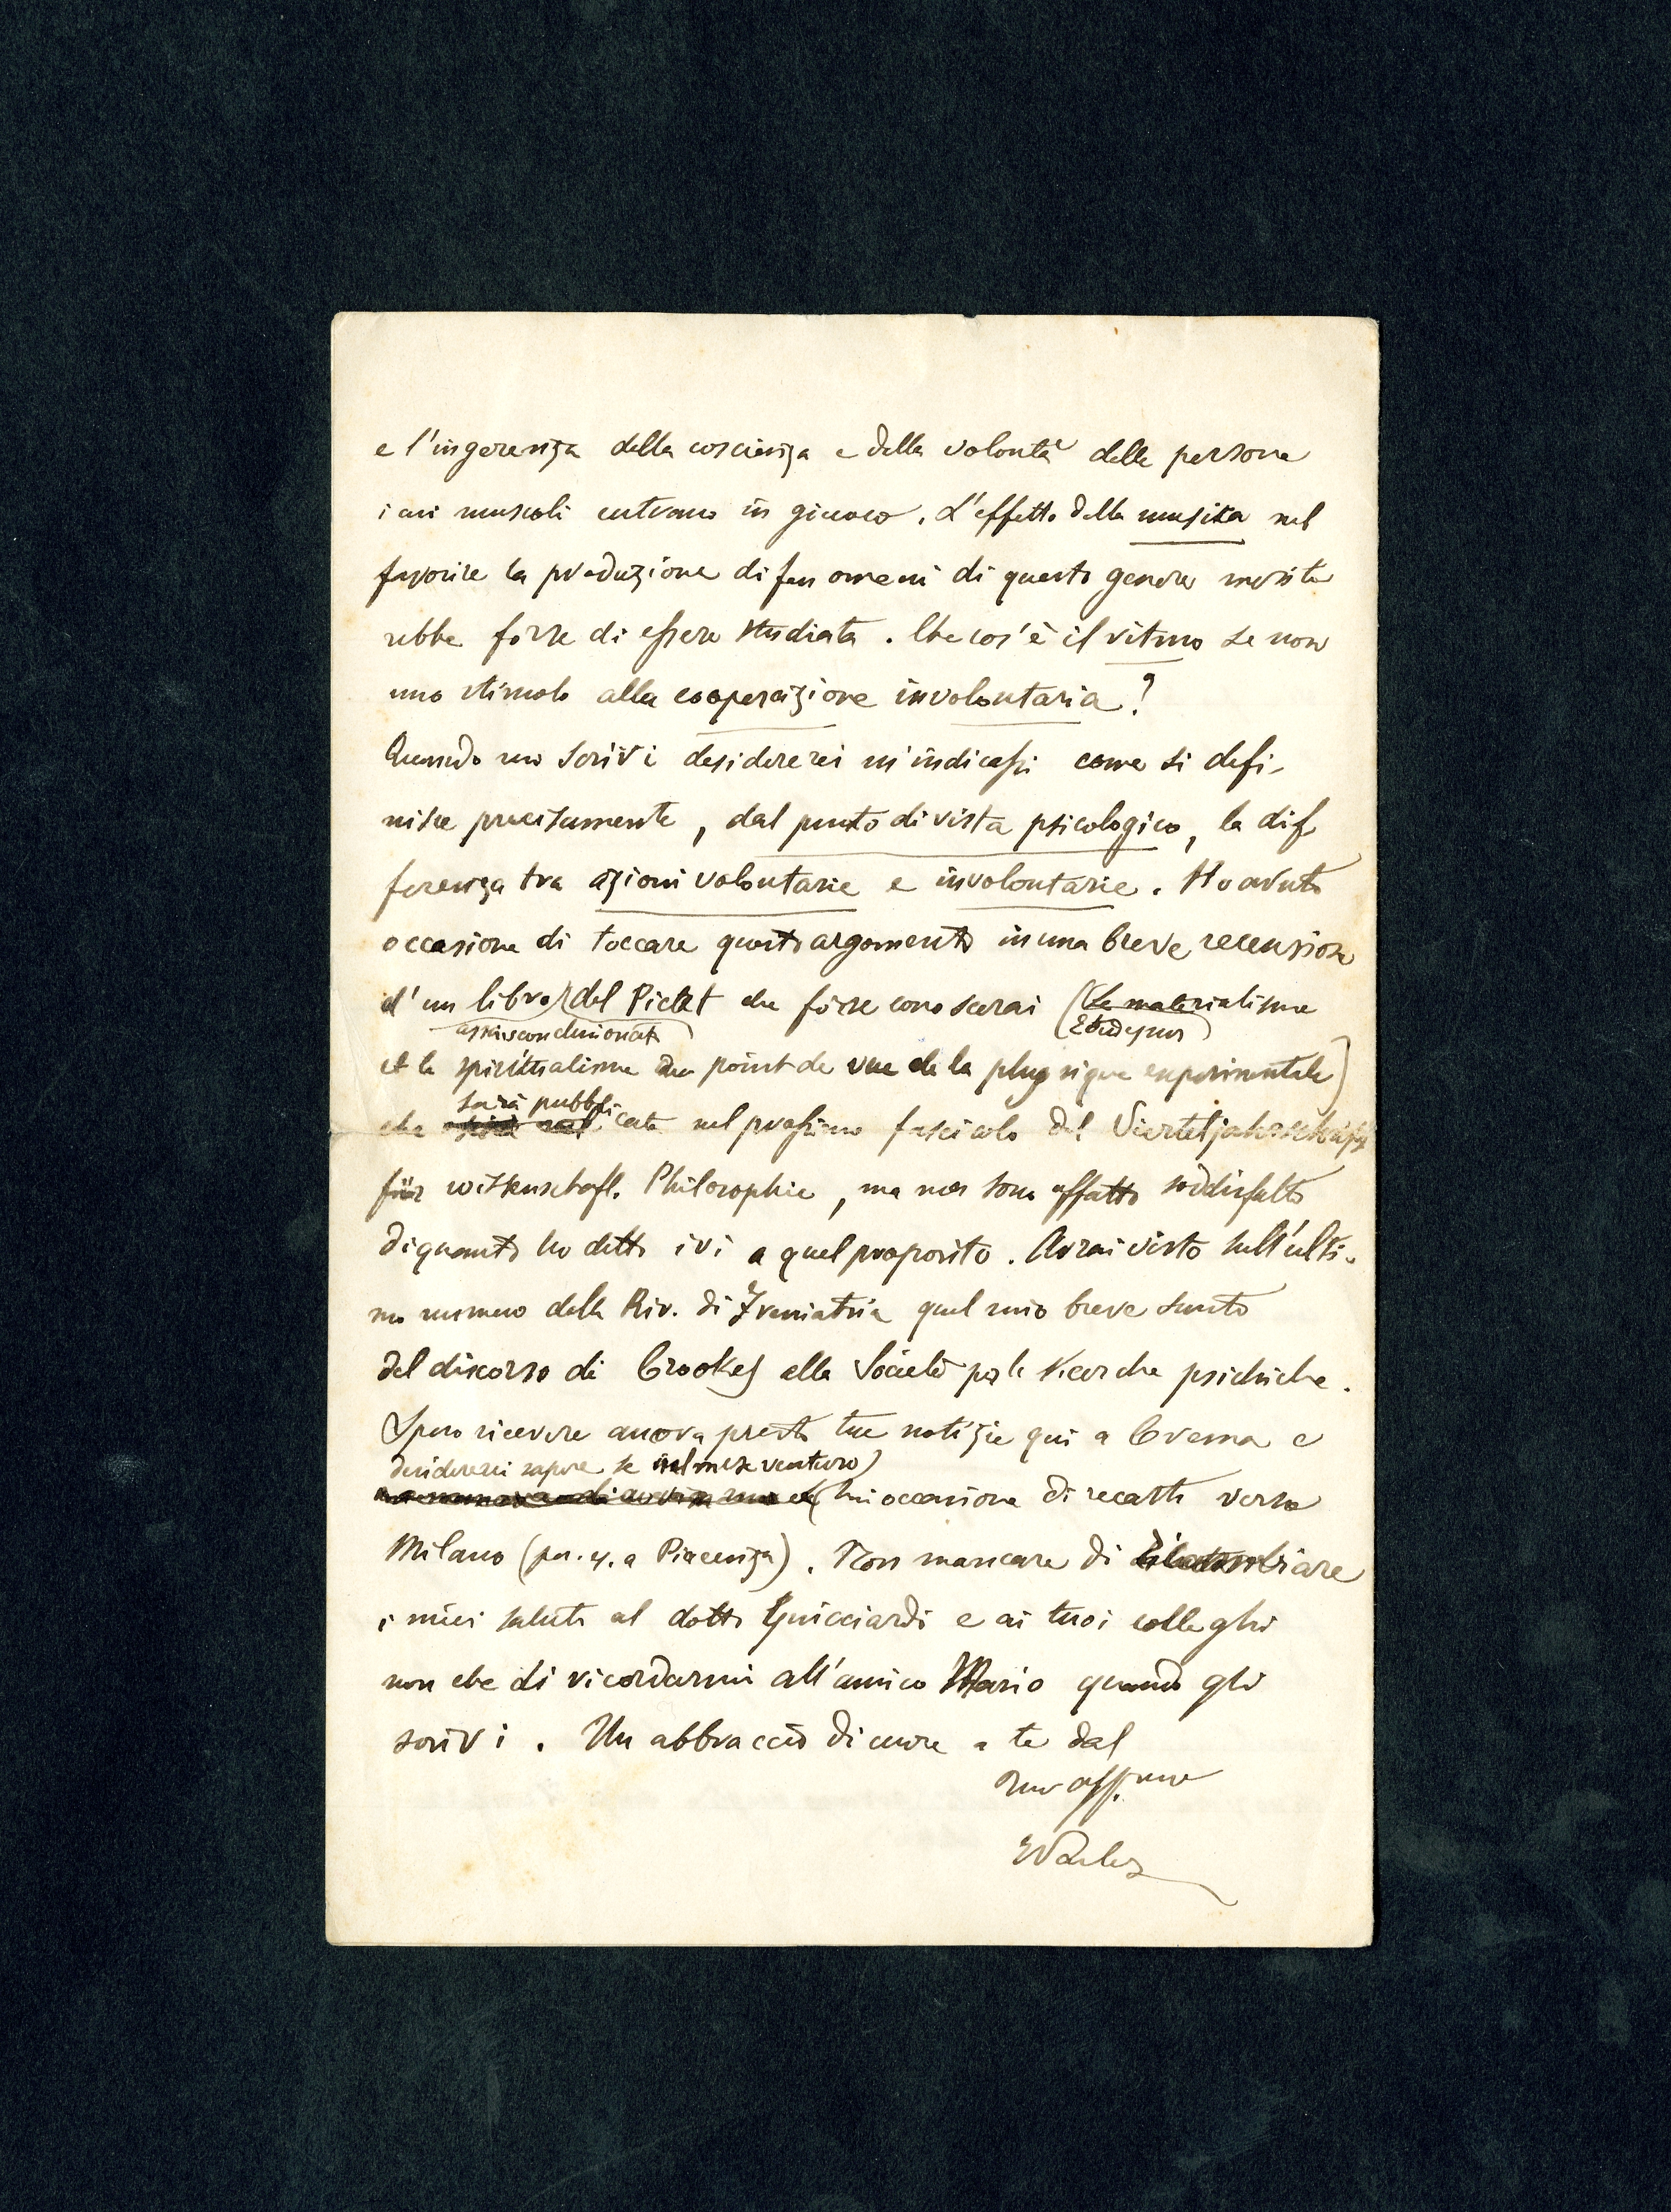 e l'ingerenza della coscienza e della volontà delle persone
i cui muscoli entrano in giuoco. L'effetto della musica nel
favorire la produzione di fenomeni di questo genere merite
rebbe forse di essere studiata. Che cos'è il ritmo se non
uno stimolo alla cooperazione involontaria?
Quando mi scrivi desidererei m'indicassi come si defi-
nisce precisamente, dal punto di vista psicologico, la dif
ferenza tra azioni volontarie e involontarie. Ho avuto
occasione di toccare questo argomento in una breve recensione
d'un libro del Pictet che forse conoscerai (Le materialisme
assai sconclusionato (Etude pour)
et le spiritualisme au point de vue de la physique experimentale)
sarà pubbli
che cata nel prossimo fascicolo del Vierteljahrsschrift
für wissenschaftl. Philosophie, ma non sono affatto soddisfatto
di quanto ho detto ivi a quel proposito. Avrai visto sull'ulti-
mo numero della Riv. di Freniatria quel mio breve sunto
del discorso di Crookes alla Società per le ricerche psichiche.
Spero ricevere ancora presto tue notizie qui a Crema e
desidererei sapere se nel mese venturo
hai occasione di recarti verso
Milano (p. es. a Piacenza). Non mancare di
i miei saluti al dottr Guicciardi e ai tuoi colleghi
non che di ricordarmi all'amico Mario quando gli
scrivi. Un abbraccio di cuore a te dal
tuo aff.mo